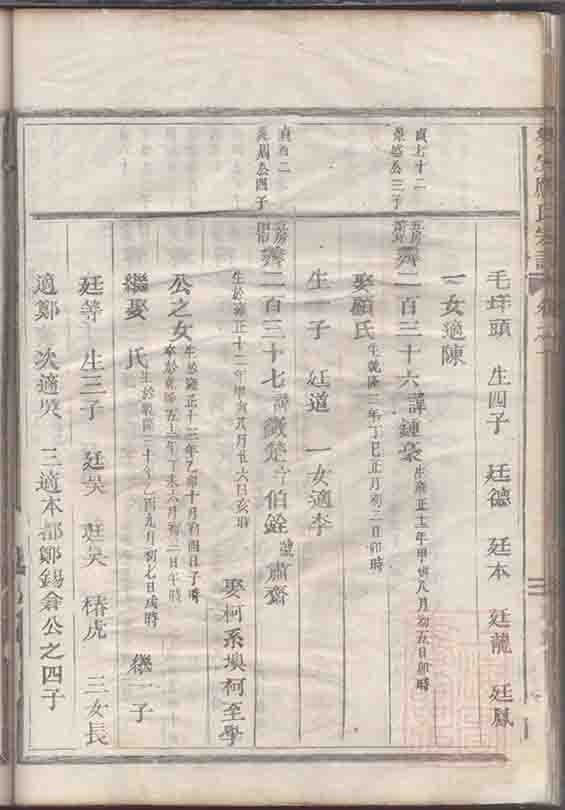 毛坪頭 生四子 廷德 廷本 廷龍 廷鳳
一女適陳
貞七十二
榮盛公三子
五房
薺二百三十六諱鍾豪 生雍正十二年甲寅八月初五日卯時
娶顧氏 生乾隆二年丁巳正月初二日卯時
生一子 廷道 一女適李
貞百二
公四子
薺二百三十七諱徵楚字伯銓號肅齋
生於雍正十二年甲寅 月廿六日亥時 娶柯系墺柯至學
公之女 生於雍正十三年乙卯十月初四日子時
卒於乾隆五十二年丁未六月初二日午時
繼娶 氏 生於乾隆三十年乙酉九月初七日戌時 繼一子
廷等 生三子 廷吴 廷吴 椿虎 三女長
適鄭 次適吳 三適本都鄭錫倉公之四子